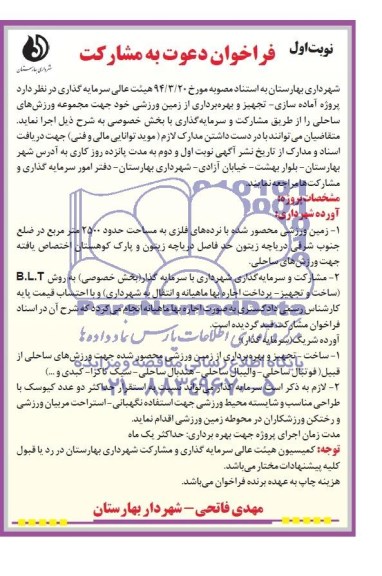 نوبت اول
فراخوان دعوت به مشارکت
شهرداری بهارستان
شهرداری بهارستان به استناد مصوبه مورخ ۹۴/۳/۲۰ هیئت عالی سرمایه گذاری در نظر دارد
پروژه آماده سازی- تجهیز و بهره‌برداری از زمین ورزشی خود جهت مجموعه ورزش‌های
ساحلی را از طریق مشارکت و سرمایه‌گذاری با بخش خصوصی به شرح ذیل اجرا نماید.
متقاضیان می‌توانند با در دست داشتن مدارک لازم ( موید توانایی مالی و فنی) جهت دریافت
اسناد و مدارک از تاریخ نشر آگهی نوبت اول و دوم به مدت پانزده روز کاری به آدرس شهر
بهارستان- بلوار بهشت- خیابان آزادی- شهرداری بهارستان- دفتر امور سرمایه گذاری و
مشارکت‌ها مراجعه نمایند.
مشخصات پروژه:
آورده شهرداری:
۱- زمین ورزشی محصور شده با نرده‌های فلزی به مساحت حدود ۲۵۰۰ متر مربع در ضلع
جنوب شرقی دریاچه زیتون حد فاصل دریاچه زیتون و پارک کوهستان اختصاص یافته
جهت ورزش‌های ساحلی.
۲- مشارکت و سرمایه‌گذاری شهرداری با سرمایه گذار(بخش خصوصی) به روش B.L.T
(ساخت و تجهیز - پرداخت اجاره بها ماهیانه و انتقال به شهرداری) و با احتساب قیمت پایه
کارشناس رسمی دادگستری به صورت اجاره بها ماهیانه انجام می‌گردد که شرح آن در اسناد
فراخوان مشارکت قید گردیده است.
آورده شریک(سرمایه گذار):
۱- ساخت - تجهیز و بهره‌برداری از زمین ورزشی محصور شده جهت ورزش‌های ساحلی از
قبیل( فوتبال ساحلی - والیبال ساحلی - هندبال ساحلی - سپک تاکرا- کبدی و ...)
۲- لازم به ذکر است سرمایه گذار می‌تواند نسبت به استقرار حداکثر دو عدد کیوسک با
طراحی مناسب و شایسته محیط ورزشی جهت استفاده نگهبانی - استراحت مربیان ورزشی
و رختکن ورزشکاران در محوطه زمین ورزشی اقدام نماید.
مدت زمان اجرای پروژه جهت بهره برداری: حداکثر یک ماه
توجه: کمیسیون هیئت عالی سرمایه گذاری و مشارکت شهرداری بهارستان در رد یا قبول
کلیه پیشنهادات مختار می‌باشد.
هزینه چاپ به عهده برنده فراخوان می‌باشد.
مهدی فاتحی - شهردار بهارستان